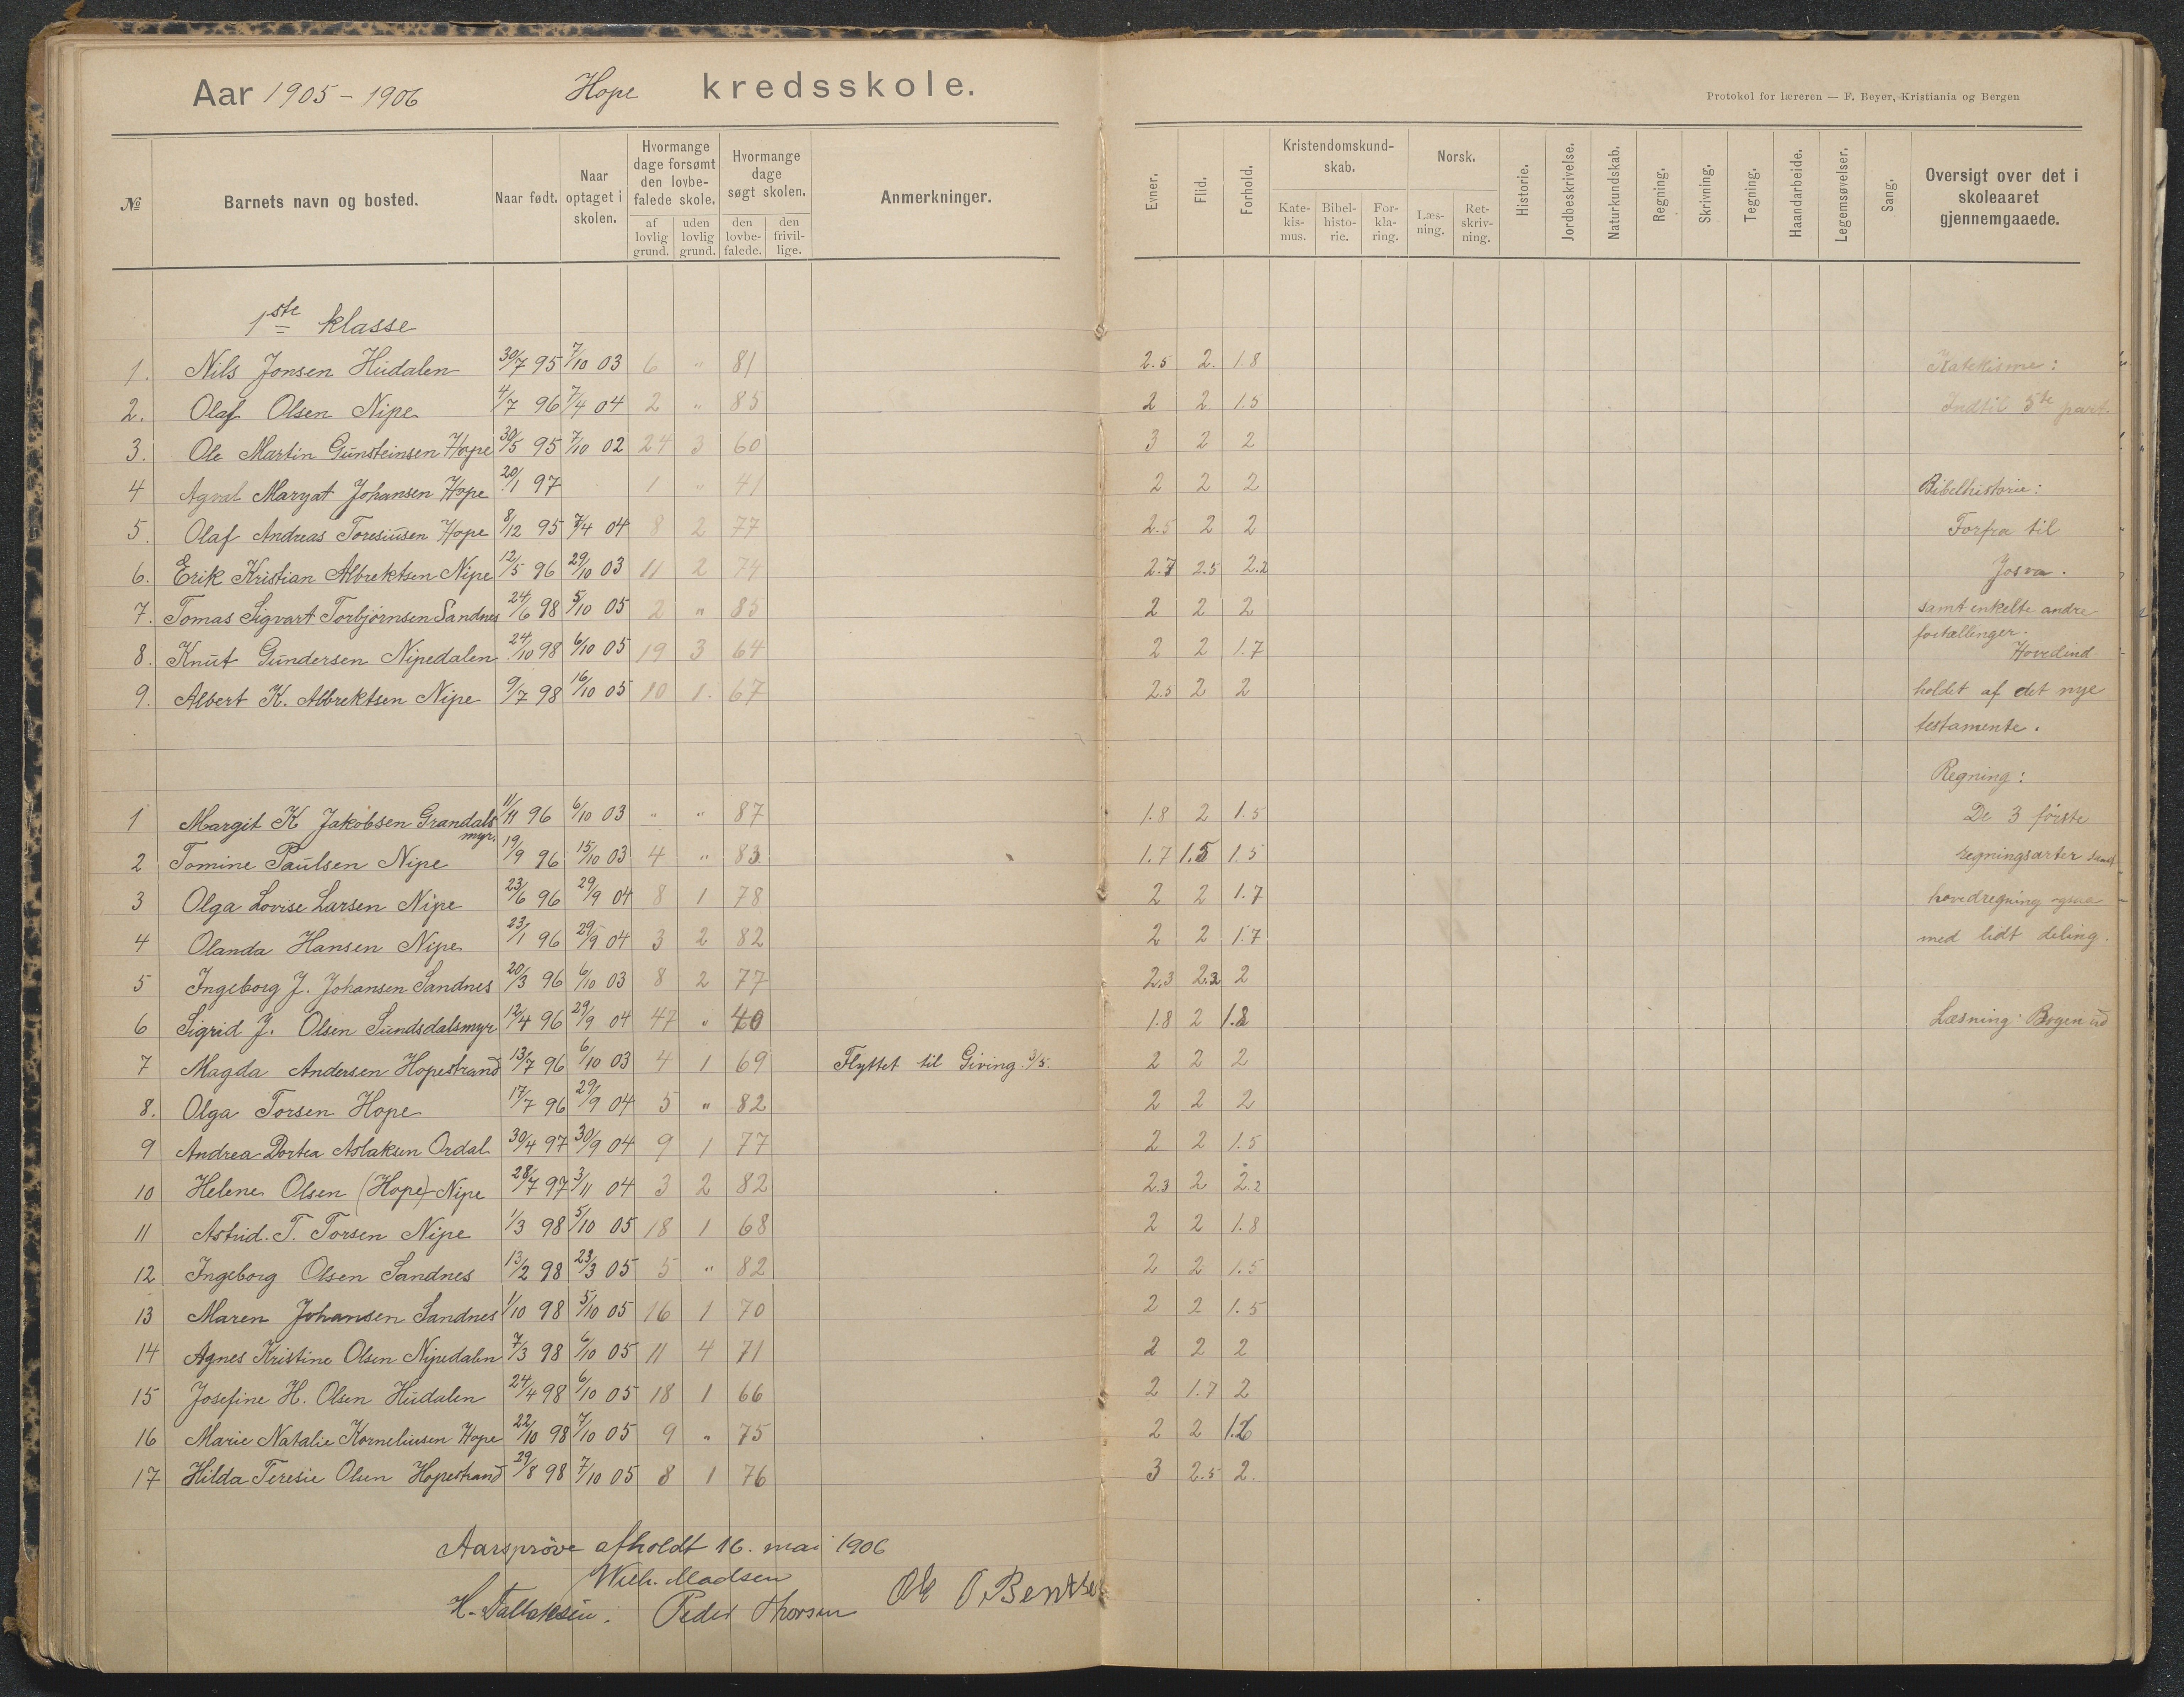 Aar 1905-1906 Hope kredsskole.
Protokol for læreren — F. Beyer, Kristiania og Bergen
№ Barnets navn og bosted. Naar født. Naar optaget i skolen. Hvormange dage forsømt den lovbefalede skole. af lovlig grund. uden lovlig grund. Hvormange dage søgt skolen. den lovbefalede. den frivillige. Anmerkninger. Evner. Flid. Forhold. Kristendomskundskab. Katekismus. Bibelhistorie. Forklaring. Norsk. Læsning. Retskrivning. Historie. Jordbeskrivelse. Naturkundskab. Regning. Skrivning. Tegning. Haandarbeide. Legemsøvelser. Sang. Oversigt over det i skoleaaret gjennemgaaede.
1ste klasse
1. Nils Jonsen Hudalen 30/7 95 7/10 03 6 " 81 2.5 2. 1.8 Katekisme:
2. Olaf Olsen Nipe 4/7 96 7/4 04 2 " 85 2 2 1.5 Indtil 5te part.
3. Ole Martin Gunsteinsen Hope 30/5 95 7/10 02 24 3 60 3 2 2
4 Agval Maryat Johansen Hope 20/1 97 1 " 41 2 2 2 Bibelhistorie:
5. Olaf Andreas Toresiusen Hope 8/12 95 7/4 04 8 2 77 2.5 2 2 Forfra til
6. Erik Kristian Albrektsen Nipe 12/5 96 29/10 03 11 2 74 2.7 2.5 2.2 Josva.
7. Tomas Sigvart Torbjørnsen Sandnes 24/6 98 5/10 05 2 " 85 2 2 2 samt enkelte andre
fortællinger.
8. Knut Gundersen Nipedalen 24/10 98 6/10 05 19 3 64 2 2 1.7 Hovedind
9. Albert K. Albrektsen Nipe 9/7 98 16/10 05 10 1. 67 2.5 2 2 holdet af det nye
testamente.
Regning:
1 Margit K Jakobsen Grandalsmyr. 1/11 96 6/10 03 " " 87 1.8 2 1.5 De 3 første
2 Tomine Paulsen Nipe 19/9 96 15/10 03 4 " 83 1.7 1.5 1.5 regningsarter samt
3 Olga Lovise Larsen Nipe 23/6 96 29/9 04 8 1 78 2 2 1.7 hovedregning ogsaa
4 Olanda Hansen Nipe 23/1 96 29/9 04 3 2 82 2 2 1.7 med lidt deling.
5 Ingeborg J. Johansen Sandnes 20/3 96 6/10 03 8 2 77 2.3 2.3 2
6 Sigrid J. Olsen Sundsdalsmyr 12/4 96 29/9 04 47 " 40 1.8 2 1.8 Læsning: Bogen ud
7 Magda Andersen Hopestrand 13/7 96 6/10 03 4 1 69 Flyttet til Giving 3/5. 2 2 2
8. Olga Torsen Hope 17/7 96 29/9 04 5 " 82 2 2 2
9 Andrea Dortea Aslaksen Ordal 30/4 97 30/9 04 9 1 77 2 2 1.5
10 Helene Olsen (Hope) Nipe 28/7 97 3/11 04 3 2 82 2.3 2 2.2
11 Astrid. T. Torsen Nipe 1/3 98 5/10 05 18 1 68 2 2 1.8
12 Ingeborg Olsen Sandnes 13/2 98 23/3 05 5 " 82 2 2 1.5
13 Maren Johansen Sandnes 1/10 98 5/10 05 16 1 70 2 2 1.5
14 Agnes Kristine Olsen Nipedalen 7/3 98 6/10 05 11 4 71 2 2 2
15 Josefine H. Olsen Hudalen 24/4 98 6/10 05 18 1 66 2 1.7 2
16 Marie Natalie Korneliusen Hope 22/10 98 7/10 05 9 " 75 2 2 1.6
17 Hilda Teresie Olsen Hopestrand 29/8 98 7/10 05 8 1 76 3 2.5 2.
Aarsprøve afholdt 16. mai 1906
Wilh. Madsen
H. Tallaksen. Peder Thorsen Ole O Bentsen